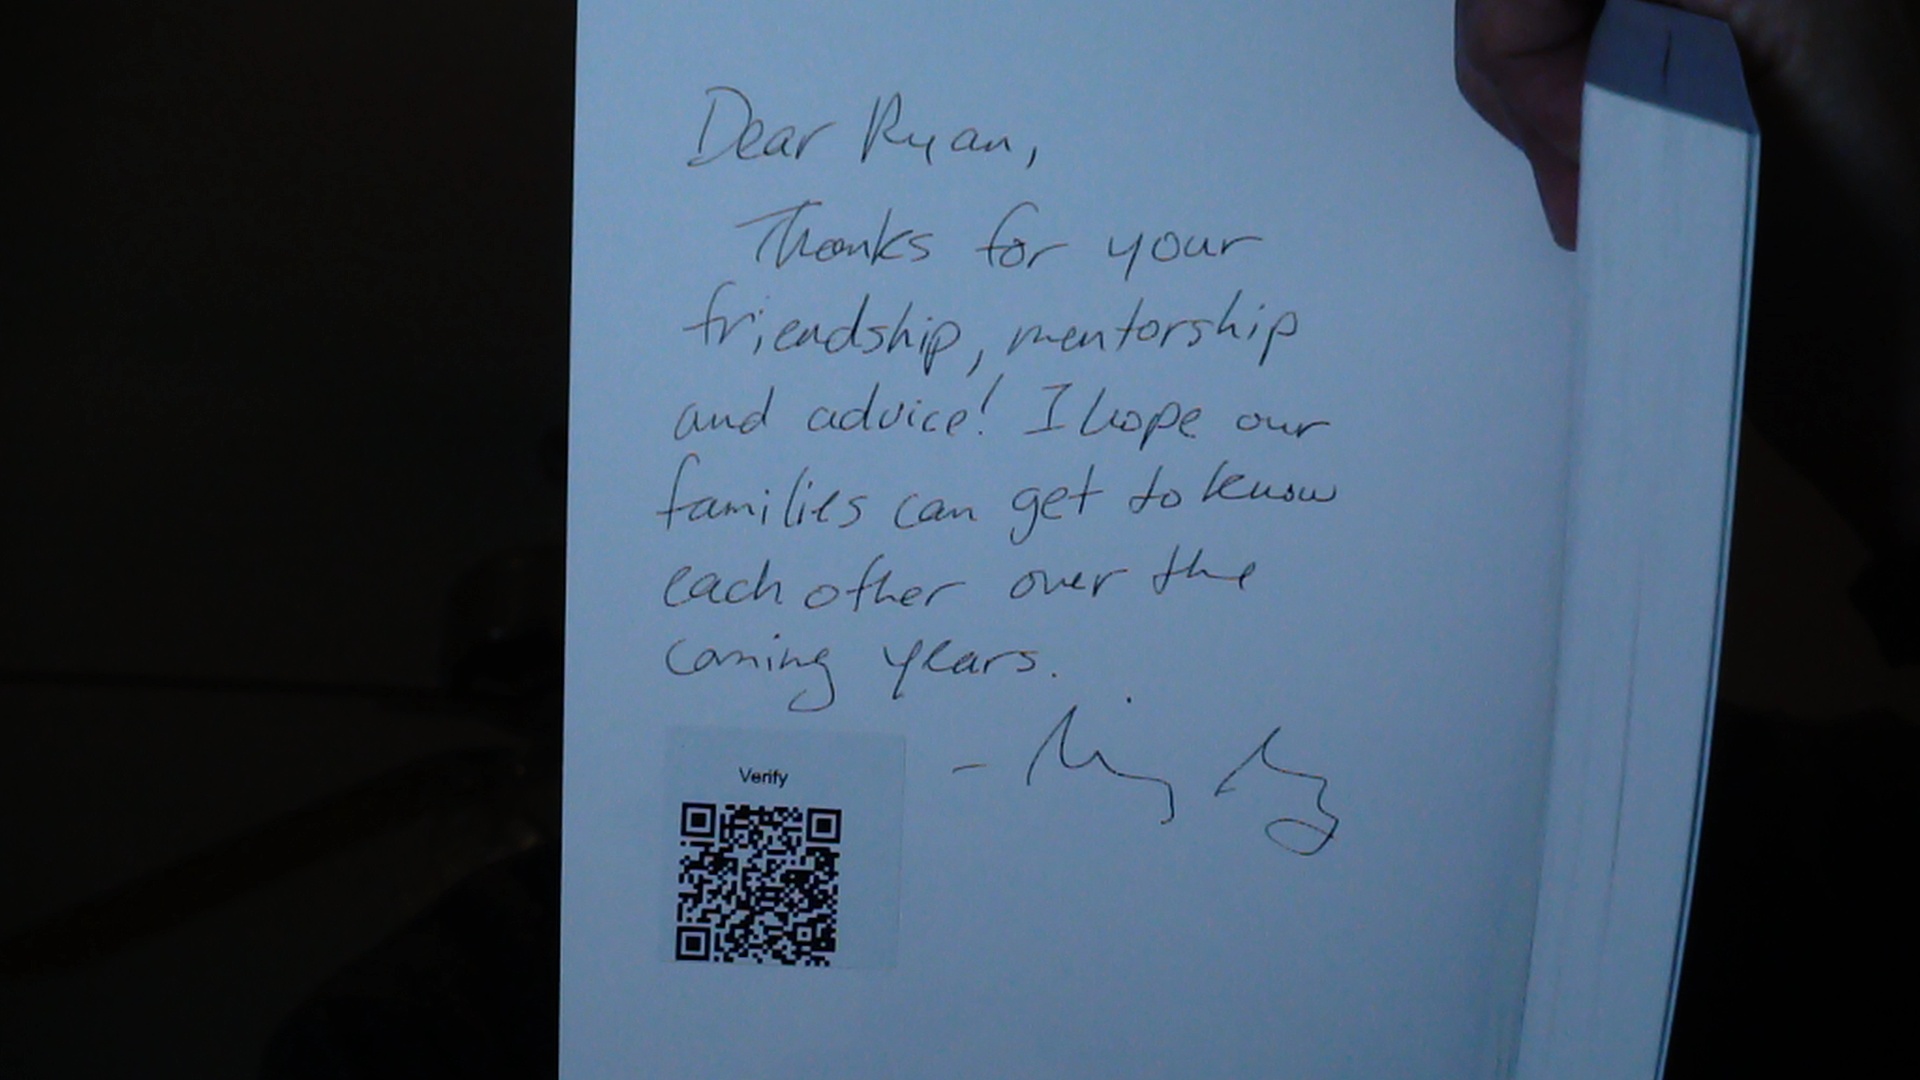 Dear Ryan,
Thanks for your
friendship, mentorship
and advice! I hope our
families can get to know
each other over the
coming years.
Verify